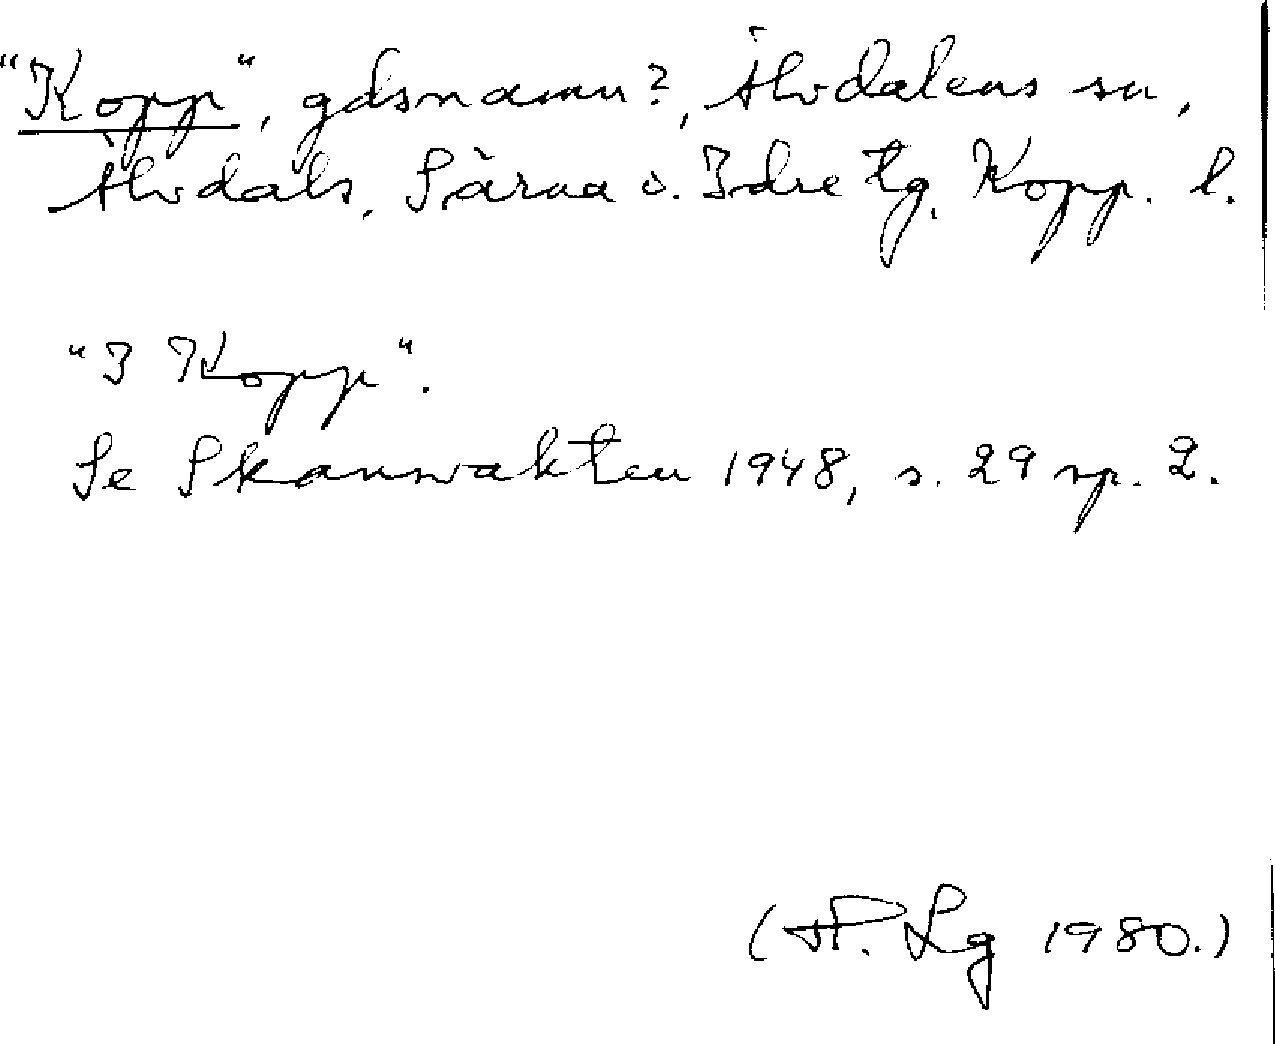 "Kopp", gdsnamn?, Älvdalens sn,
Älvdals, Särna o. Idre tg, Kopp. l.
"I Kopp".
Se Skansvakten 1948, s. 29 sp. 2.
Lg 1980.)